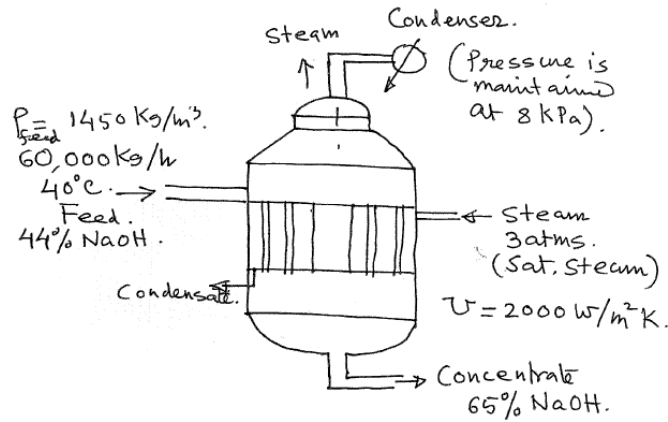 Steam
Condenser.
(Pressure is
maintained
at 8 kPa).
ρ feed = 1450 Kg/m³.
60,000 Kg/h
40°C.
Feed.
44% NaOH.
Steam
3 atms.
(Sat. Steam)
Condensate.
U = 2000 W/m²K.
Concentrate
65% NaOH.